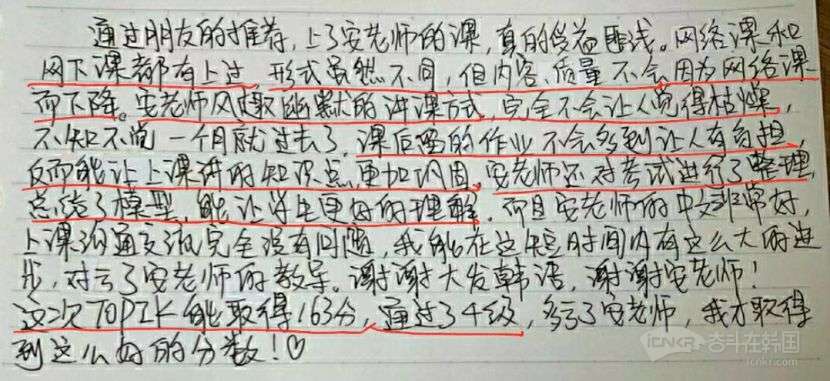 通过朋友的推荐,上了安老师的课,真的受益匪浅。网络课和
网下课都有上过,形式虽然不同,但内容、质量不会因为网络课
而下降。安老师风趣幽默的讲课方式,完全不会让人觉得枯燥,
不知不觉一个月就过去了。课后留的作业不会多到让人有负担,
反而能让上课讲的知识点更加巩固。安老师还对考试进行了整理,
总结了模型,能让学生更好的理解。而且安老师的中文非常好,
上课沟通交流完全没有问题,我能在这短时间内有这么大的进
步,对亏了安老师的教导。谢谢大发韩语,谢谢安老师!
这次TOPIK能取得163分,通过了4级,多亏了安老师,我才取得
到这么好的分数!♡
iCNKR 奋斗在韩国
icnkr.com